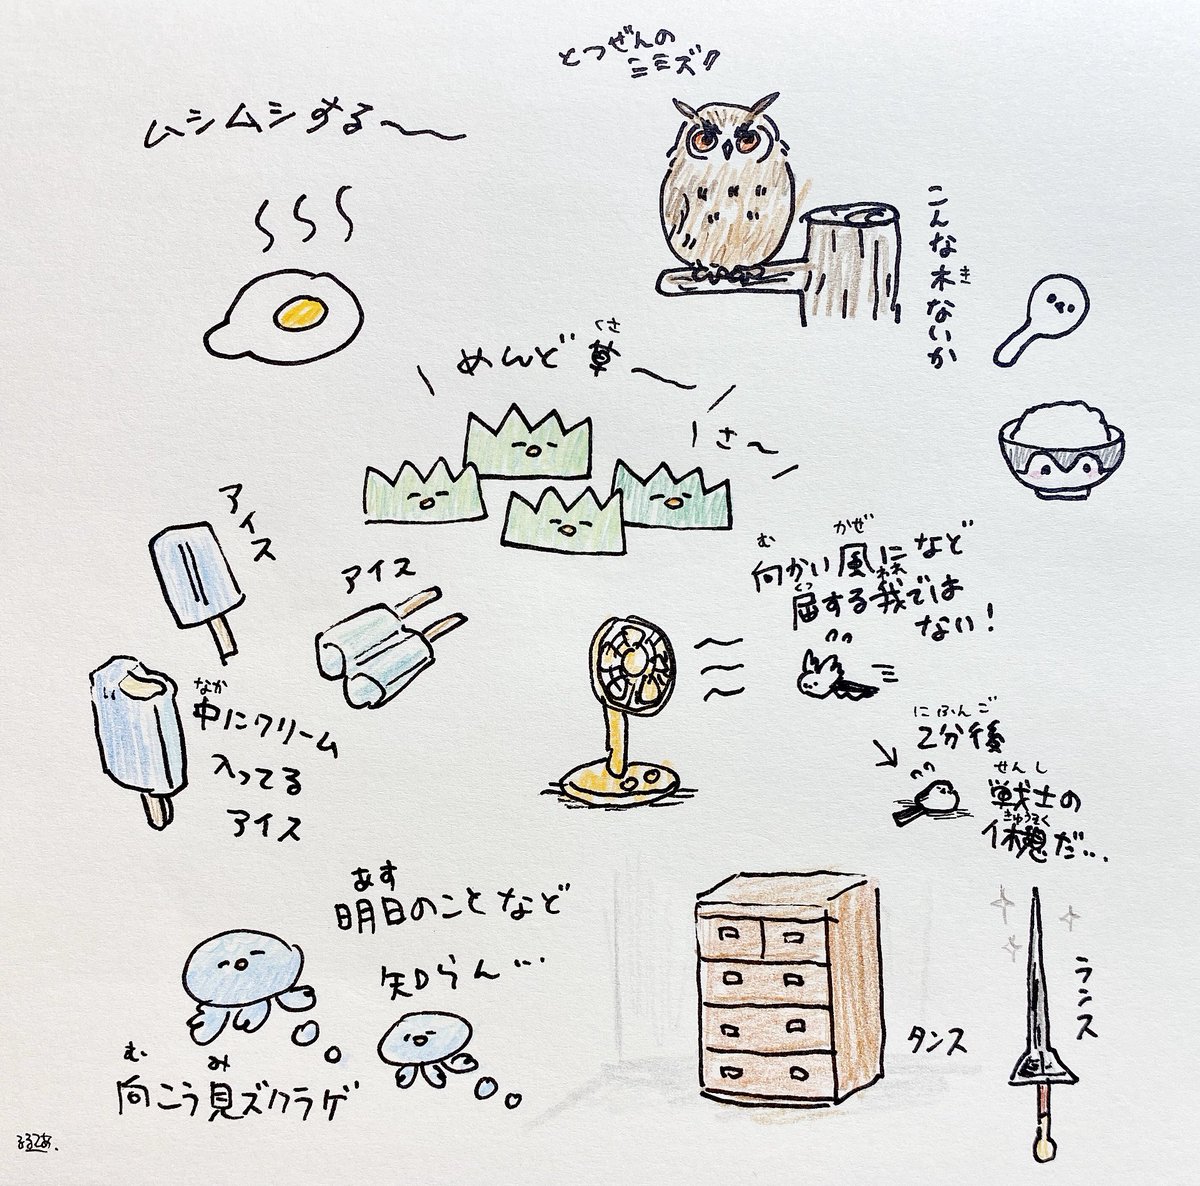 とつぜんの
ミミズク
ムシムシする〜〜
こんな木ないか
き
くさ
めんど草〜
さ〜
アイス
アイス
なか
中にクリーム
入ってる
アイス
む かぜ
向かい風になど
くっ
屈する我では
ない!
にふんご
2分後
せんし
戦士の
きゅうそく
休憩だ…
あす
明日のことなど
知らん…
む み
向こう見ズクラゲ
タンス
ランス
るるてあ.